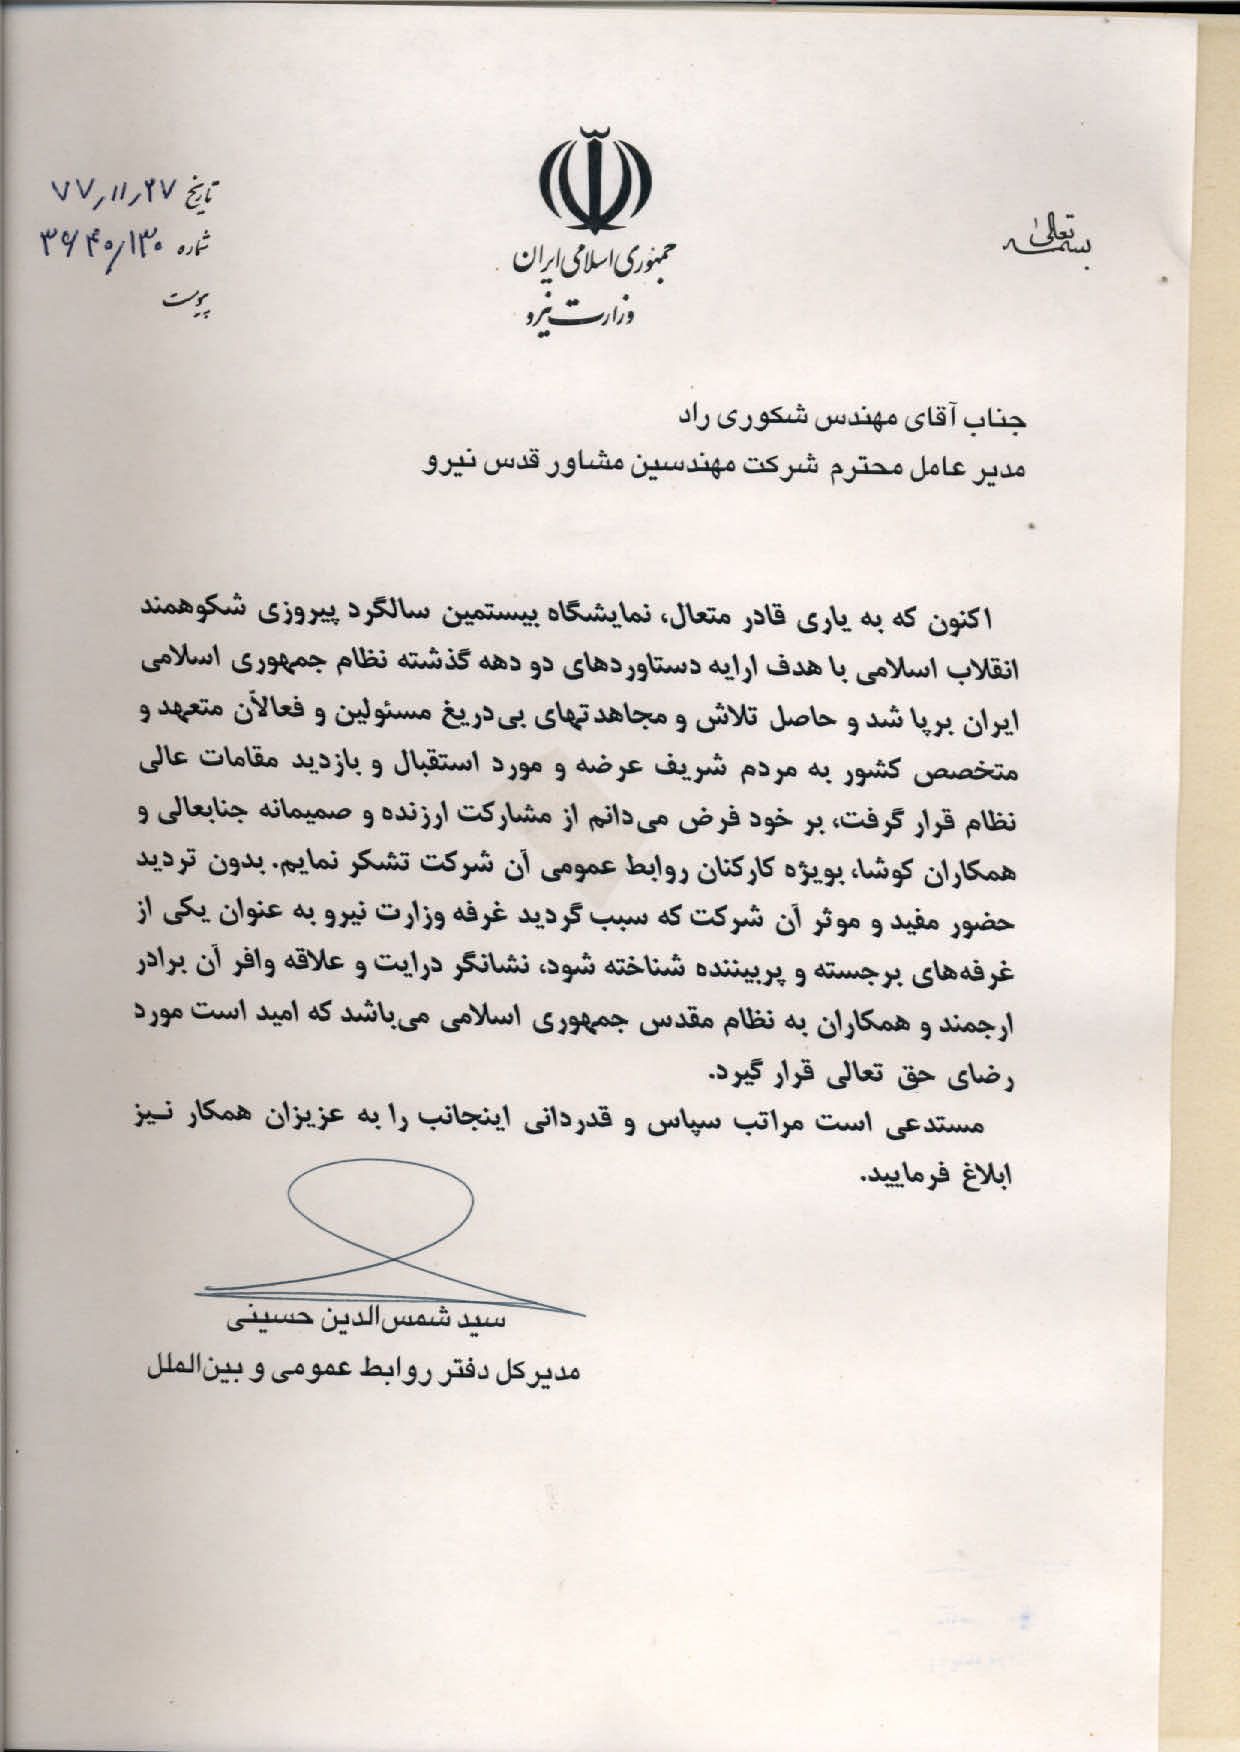 بسمه تعالی
جمهوری اسلامی ایران
وزارت نیرو
تاریخ ۷۷٫۱۱٫۲۷
شماره
پیوست
جناب آقای مهندس شکوری راد
مدیر عامل محترم شرکت مهندسین مشاور قدس نیرو
اکنون که به یاری قادر متعال، نمایشگاه بیستمین سالگرد پیروزی شکوهمند
انقلاب اسلامی با هدف ارایه دستاوردهای دو دهه گذشته نظام جمهوری اسلامی
ایران برپا شد و حاصل تلاش و مجاهدتهای بی‌دریغ مسئولین و فعالان متعهد و
متخصص کشور به مردم شریف عرضه و مورد استقبال و بازدید مقامات عالی
نظام قرار گرفت، بر خود فرض می‌دانم از مشارکت ارزنده و صمیمانه جنابعالی و
همکاران کوشا، بویژه کارکنان روابط عمومی آن شرکت تشکر نمایم. بدون تردید
حضور مفید و موثر آن شرکت که سبب گردید غرفه وزارت نیرو به عنوان یکی از
غرفه‌های برجسته و پربیننده شناخته شود، نشانگر درایت و علاقه وافر آن برادر
ارجمند و همکاران به نظام مقدس جمهوری اسلامی می‌باشد که امید است مورد
رضای حق تعالی قرار گیرد.
مستدعی است مراتب سپاس و قدردانی اینجانب را به عزیزان همکار نیز
ابلاغ فرمایید.
سید شمس‌الدین حسینی
مدیرکل دفتر روابط عمومی و بین‌الملل